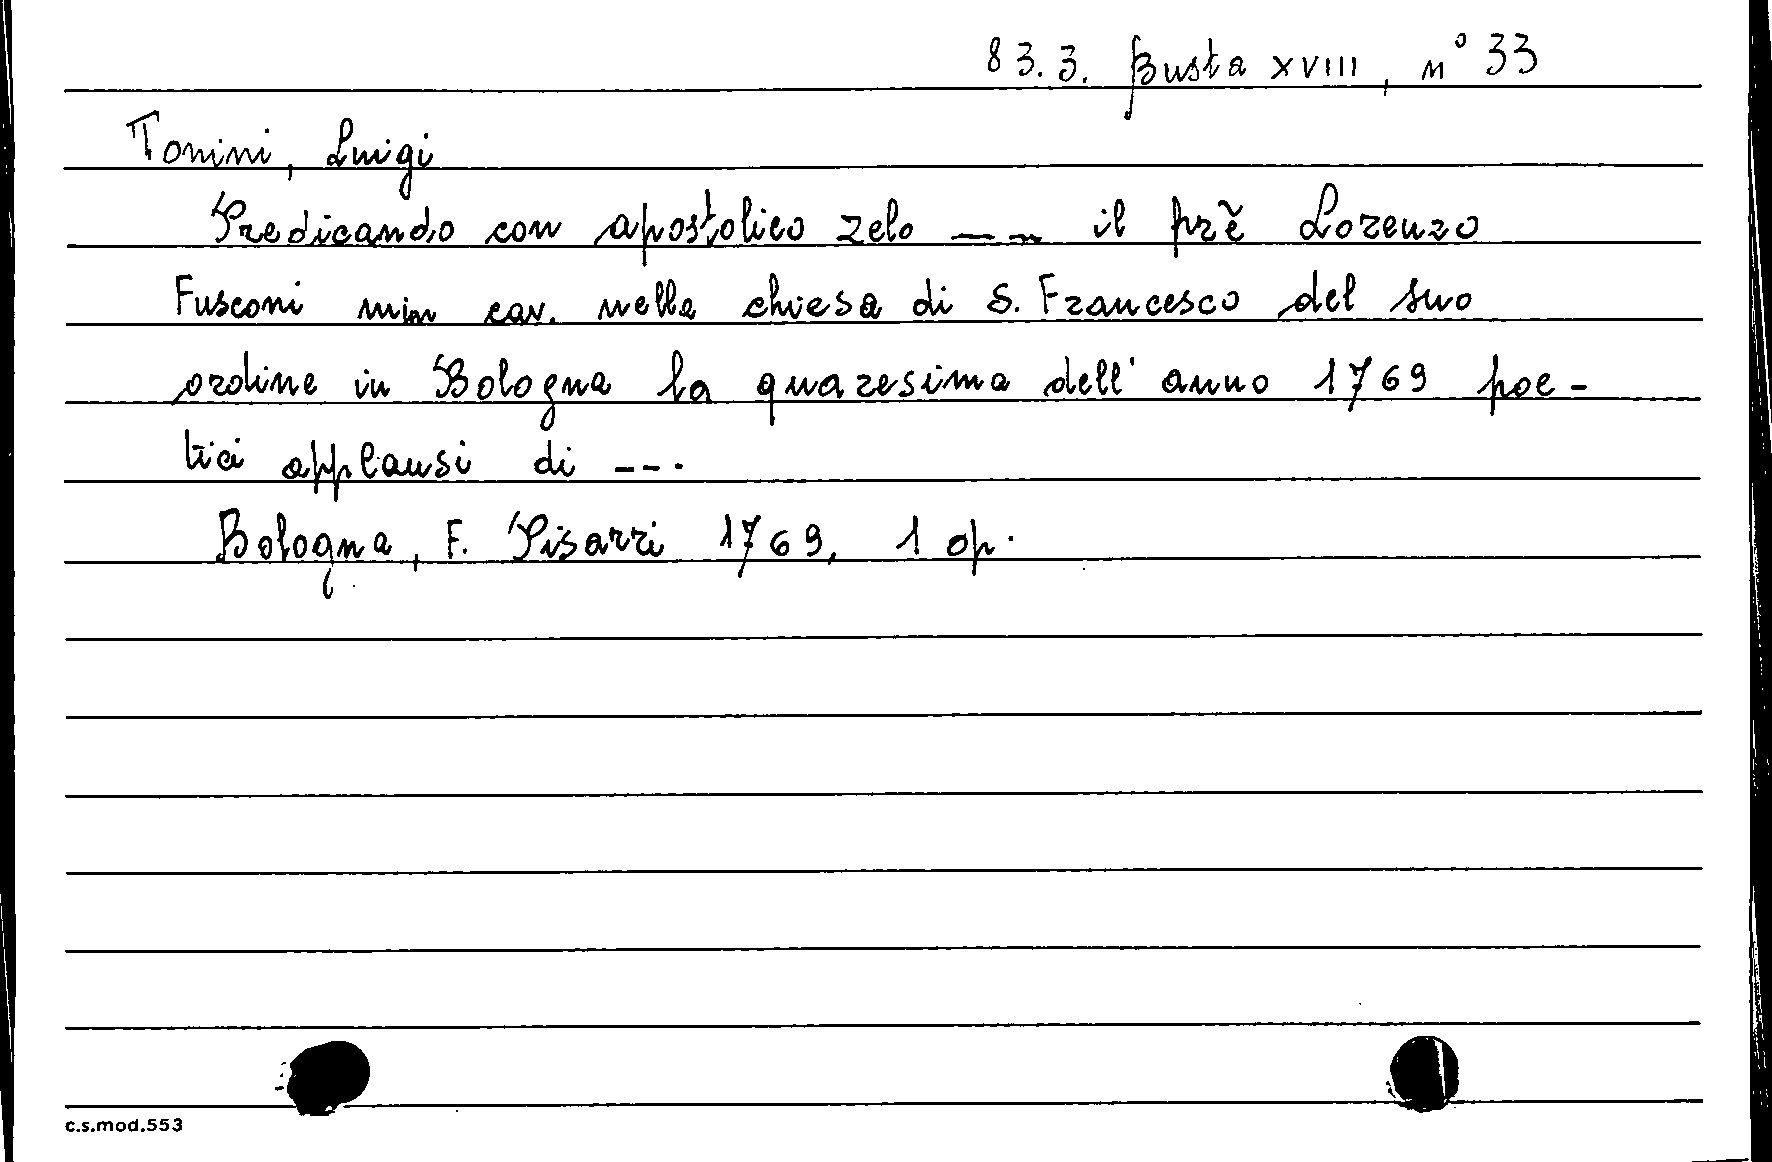 83.3. Busta XVIII, n° 33
Tonini, Luigi
Predicando con apostolico zelo --- il prẽ Lorenzo
Fusconi min cav. nella chiesa di S. Francesco del suo
ordine in Bologna la quaresima dell'anno 1769 poe-
tici applausi di ---.
Bologna, F. Pisarri 1769, 1 op.
c.s.mod.553